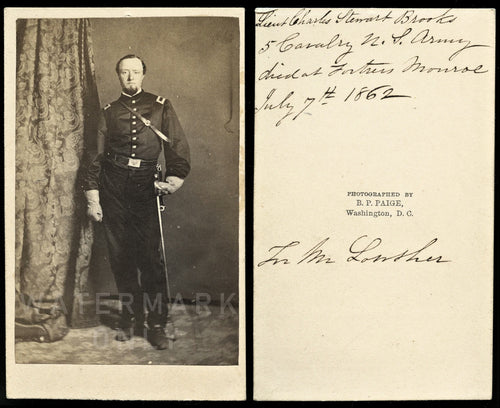 Lieut Charles Stewart Brooks
5 Cavalry U. S. Army
died at Fortress Monroe
July 7th 1862
PHOTOGRAPHED BY
B. P. PAIGE,
Washington, D. C.
For Mr Lowther
WATERMARK